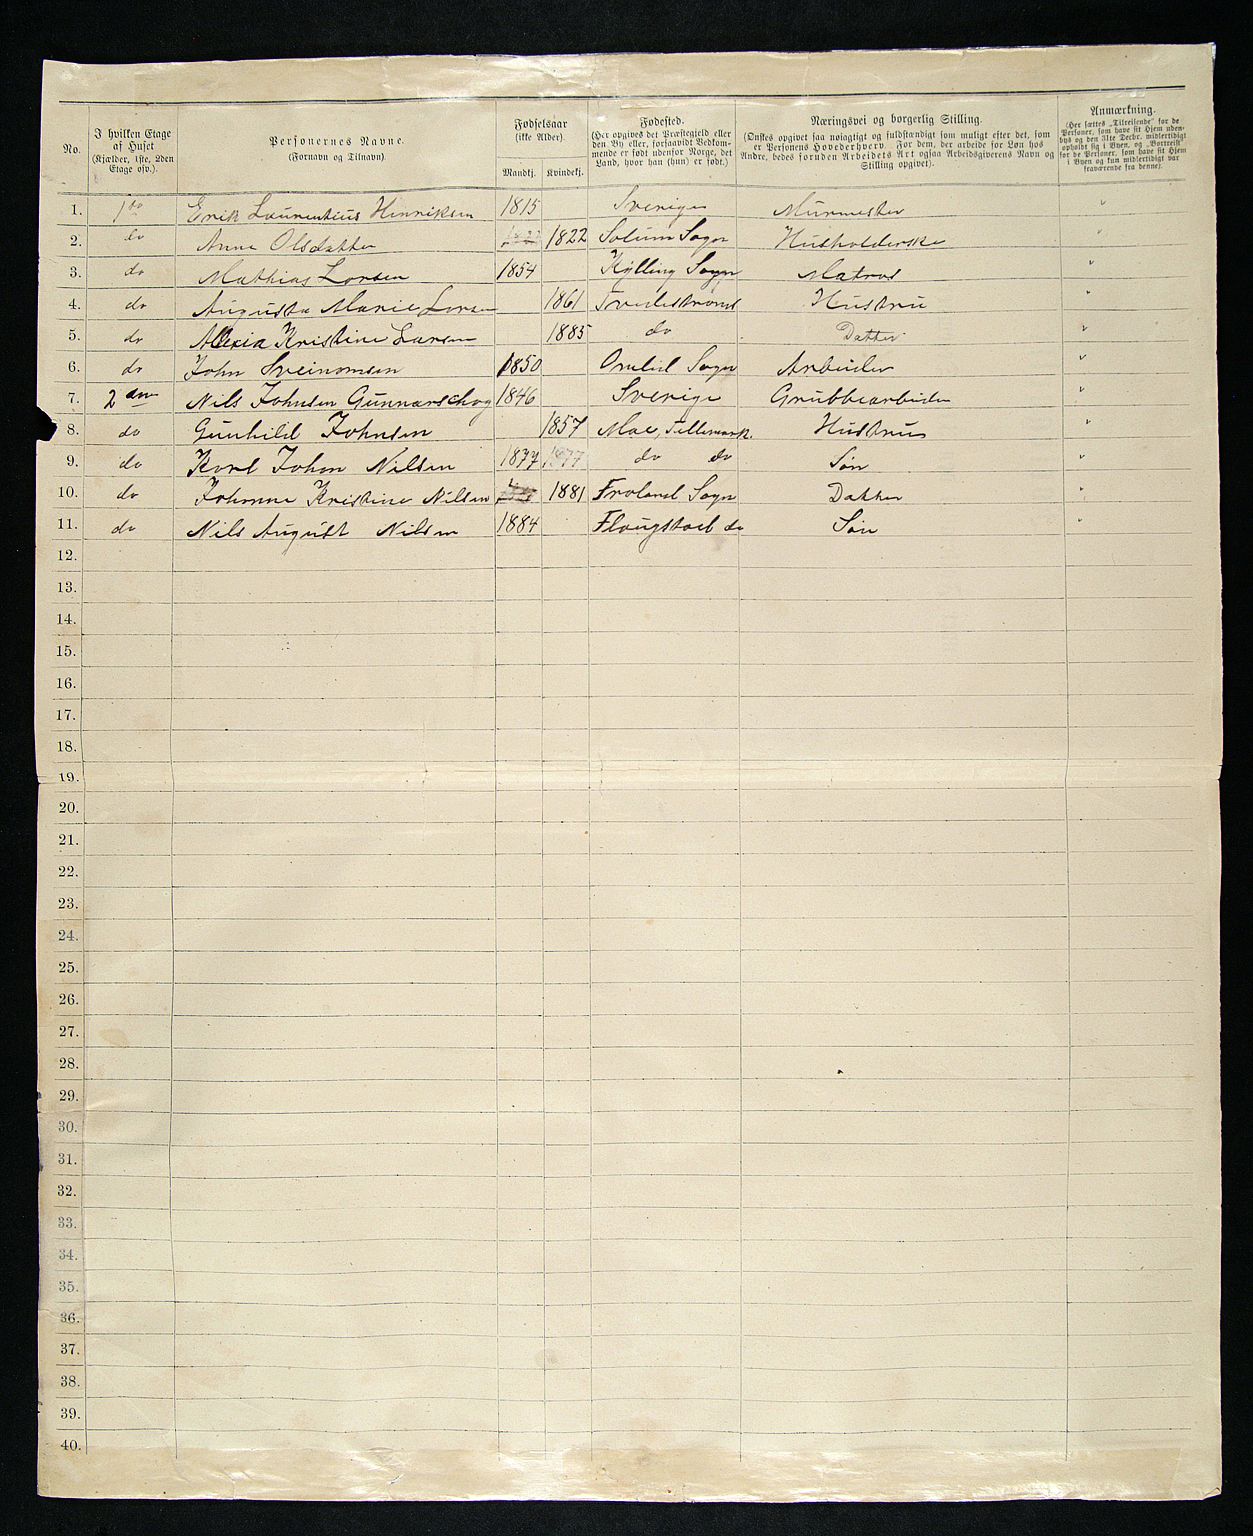 No. | I hvilken Etage af Huset (Kjælder, 1ste, 2den Etage osv.). | Personernes Navne. (Fornavn og Tilnavn). | Fødselsaar (ikke Alder). Mandkj. | Kvindekj. | Fødested. (Her opgives det Præstegjeld eller den By eller, forsaavidt Vedkommende er født udenfor Norge, det Land, hvor han (hun) er født.) | Næringsvei og borgerlig Stilling. (Ønskes opgivet saa nøiagtigt og fuldstændigt som muligt efter det, som er Personens Hovederhverv. For dem, der arbeide for Løn hos Andre, bedes foruden Arbeidets Art ogsaa Arbeidsgiverens Navn og Stilling opgivet). | Anmærkning. (Her sættes „Tilreisende“ for de Personer, som have sit Hjem udenbys og den 31te Decbr. midlertidigt opholdt sig i Byen, og „Bortreist“ for de Personer, som have sit Hjem i Byen og kun midlertidigt var fraværende fra denne).
1. | 1ste | Erik Laurentius Henriksen | 1815 | | Sverige | Murmester | "
2. | do | Anne Olsdatter | | 1822 | Solum Sogn | Husholderske | "
3. | do | Mathias Larsen | 1854 | | Sogn | Matros | "
4. | do | Augusta Marie Larsen | | 1861 | | Hustru | "
5. | do | Alexia Kristine Larsen | | 1885 | do | Datter | "
6. | do | John | 1850 | | Omlid Sogn | Arbeider | "
7. | 2den | Nils Johnsen | 1846 | | Sverige | Grubbearbeider | "
8. | do | Gunhild Johnsen | | 1857 | Moe, Tellemark. | Hustru | "
9. | do | Karl Johan Nilsen | 1877 | 1877 | do do | Søn | "
10. | do | Johanne Kristine Nilsen | | 1881 | Froland Sogn | Datter | "
11. | do | Nils August Nilsen | 1884 | | do | Søn | "
12.
13.
14.
15.
16.
17.
18.
19.
20.
21.
22.
23.
24.
25.
26.
27.
28.
29.
30.
31.
32.
33.
34.
35.
36.
37.
38.
39.
40.